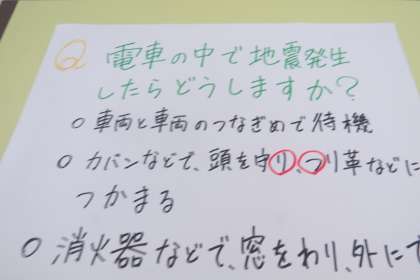 Q 電車の中で地震発生
したらどうしますか?
○ 車両と車両のつなぎめで待機
○ カバンなどで、頭を守り、つり革などに
つかまる
○ 消火器などで、窓をわり、外に